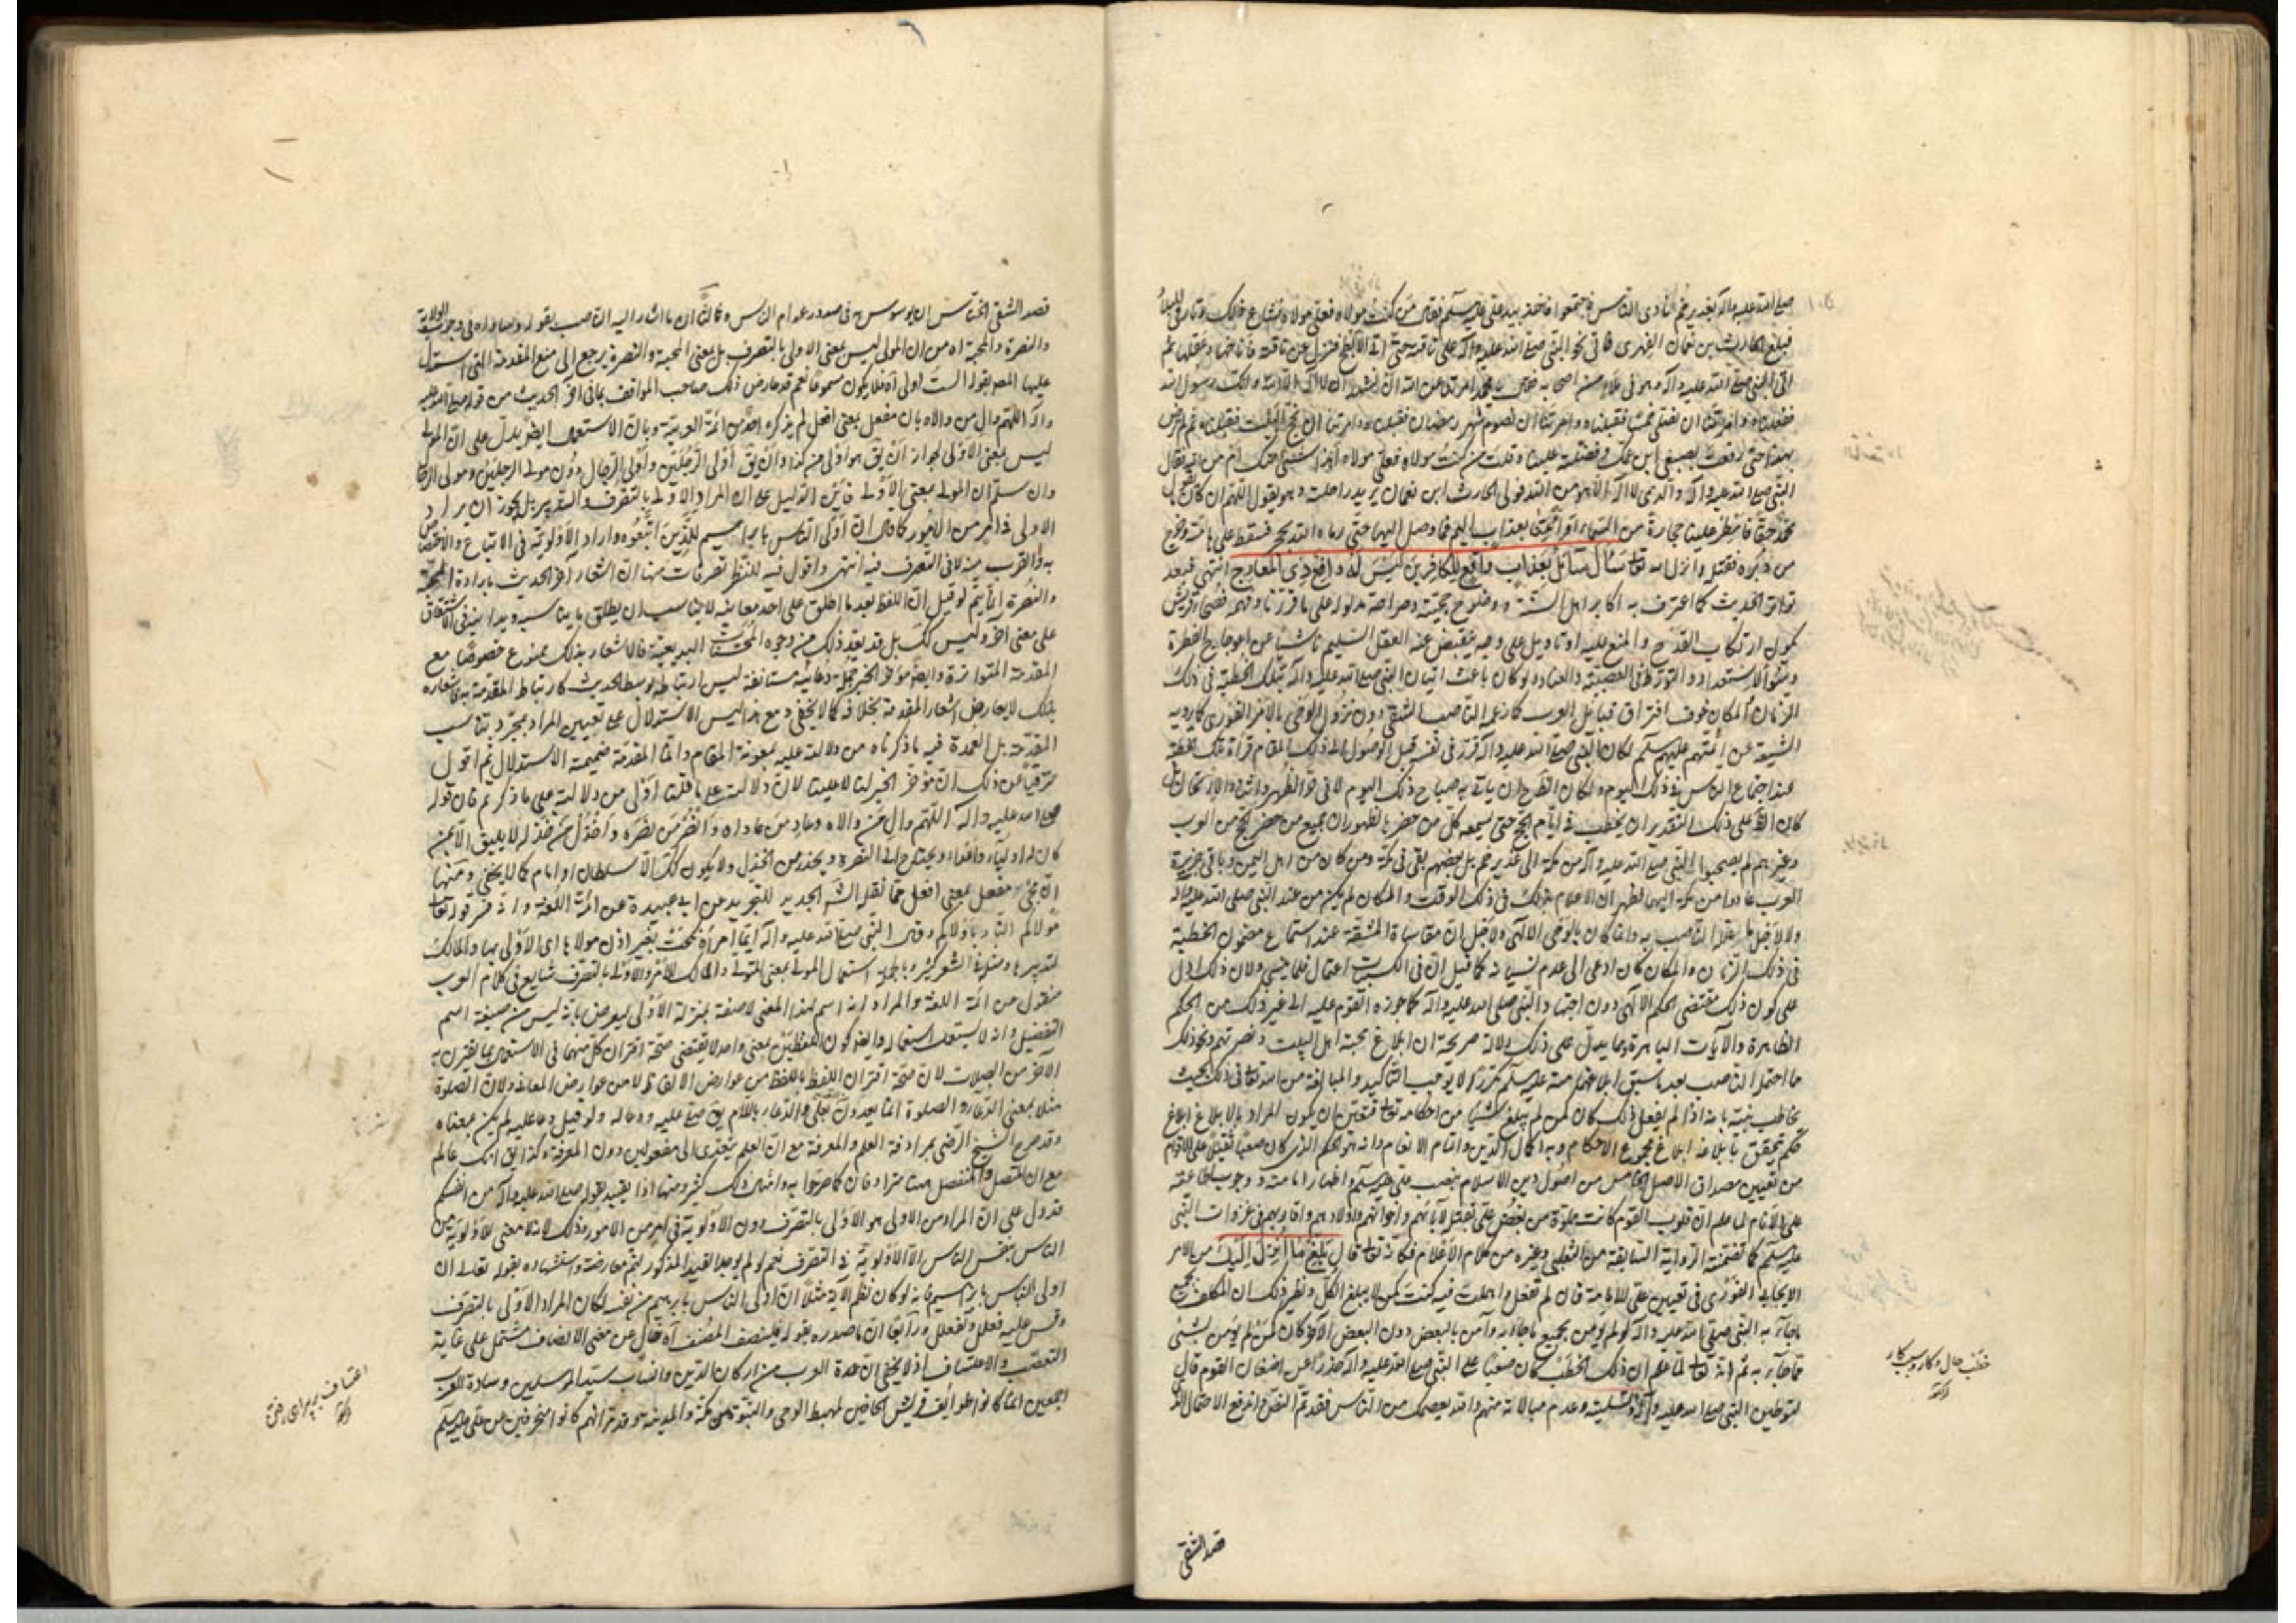 صلى الله عليه وآله بغدير خم نادى الناس فاجتمعوا فأخذ بيد علي عليه السلم فقال من كنت مولاه فعلي مولاه فشاع ذلك وطار في البلاد
فبلغ الحارث بن نعمان الفهري فاتى نحو النبي صلى الله عليه وآله على ناقته حتى اتى الابطح فنزل عن ناقته فاناخها وعقلها ثم
اتى النبي صلى الله عليه وآله وهو في ملاء من اصحابه فقال يا محمد امرتنا عن الله ان نشهد ان لا اله الا الله وانك رسول الله
ففعلناه وامرتنا ان نصلي خمسا فقبلناه وامرتنا ان نصوم شهر رمضان فقبلناه وامرتنا ان نحج البيت فقبلناه ثم لم ترض
بهذا حتى رفعت بضبعي ابن عمك وفضلته علينا وقلت من كنت مولاه فعلي مولاه أهذا شيء منك ام من الله فقال
النبي صلى الله عليه وآله والذي لا اله الا هو من الله فولى الحارث ابن نعمان يريد راحلته وهو يقول اللهم ان كان ما يقول
محمد حقا فامطر علينا حجارة من السماء او ائتنا بعذاب اليم فما وصل اليها حتى رماه الله بحجر فسقط على هامته وخرج
من دبره فقتله وانزل الله تعالى سأل سائل بعذاب واقع للكافرين ليس له دافع ذي المعارج انتهى فبعد
تواتر الحديث كما اعترف به اكابر اهل السنة ووضوح حجيته وصراحة مدلوله على ما قررنا
يكون ارتكاب القدح والمنع عليه او تأويل على وجه يمتقض عنه العقل السليم ناشيا عن اعوجاج الفطرة
وسوء الاستعداد والتورط في العصبية والعناد ولو كان باعث اتيان النبي صلى الله عليه وآله بتلك الخطبة في ذلك
الزمان والمكان خوف افتراق قبائل العرب كما زعمه الناصب الشقي دون نزول الوحي بالامر الفوري كما رويه
الشيعة عن ائمتهم عليهم السلم لكان النبي صلى الله عليه وآله قرر في نفسه قبل الوصول الى ذلك المقام قراءة تلك الخطبة
عند اجتماع الناس في ذلك اليوم ولكان ان يأتي به صباح ذلك اليوم لا في حر الظهر
كان على ذلك التقدير ان يخطب في ايام الحج حتى يسمعه كل من حضرها لظهور ان جميع من حضر الحج من العرب
وغيرهم لم يصحبوا النبي صلى الله عليه وآله من مكة الى غدير خم بل بعضهم بقي في مكة ومن كان من اهل اليمن وباقي جزيرة
العرب عادوا من مكة اليها فظهر ان الاعلام بذلك في ذلك الوقت والمكان لم يكن من عند النبي صلى الله عليه وآله
الناصب به وانما كان بالوحي الالهي ولا قبل ان مقاساة المشقة عند استماع مضمون الخطبة
في ذلك الزمان والمكان كان ادعى الى عدم نسيانه كما قيل ان في
على كون ذلك مقتضى الحكم الالهي دون اجتهاد النبي صلى الله عليه وآله كما جوزه القوم عليه الى غير ذلك من الحكم
الظاهرة والآيات الباهرة ومما يدل على ذلك دلالة صريحة ان ابلاغ محبة اهل البيت ونصرتهم ونحو ذلك
ما احتمله الناصب بعد ما سبق لا يوجب التأكيد والمبالغة من الله تعالى في ذلك بحيث
يخاطب نبيه بانه اذا لم يفعل ذلك كان كمن لم يبلغ شيئا من احكامه تعالى فتعين ان يكون المراد بالابلاغ ابلاغ
حكم يتحقق بابلاغه ابلاغ مجموع الاحكام وبه اكمال الدين واتمام الانعام وانه هو الحكم الذي كان صعبا ثقيلا على الاقوام
من تعيين مصداق الاصل الخامس من اصول دين الاسلام بنصب علي عليه السلم واظهار امامته ووجوب طاعته
على الانام لما علم ان قلوب القوم كانت مملوة من بغض علي بقتل آبائهم واخوانهم واولادهم واقاربهم في غزوات النبي
عليه السلم كما تضمنته الرواية السابقة من الثعلبي وغيره من كلام الاعلام فكانه تعالى قال بلغ ما انزل اليك من الامر
الايجابي الفوري في تعيين علي للامامة فان لم تفعل واهملت فيه كنت كمن لا يبلغ الكل ونظير ذلك ان المكلف بجميع
ما جاء به النبي صلى الله عليه وآله لو لم يؤمن بجميع ما جاء به وآمن بالبعض دون البعض الآخر كان كمن لم يؤمن بشيء
مما جاء به ثم انه تعالى لما علم ان ذلك الخطب كان صعبا على النبي صلى الله عليه وآله حذرا عن اضغان القوم قال
لتوطين النبي صلى الله عليه وآله وتسليته وعدم مبالاته منهم والله يعصمك من الناس فقد تم النص واندفع الاحتمال الذي
قصد الشقي
قصد الشقي الخناس ان يوسوس به في صدور عوام الناس وثالثا ان ما اشار اليه الناصب بقوله
والنصرة والمحبة اه من ان المولى ليس بمعنى الاولى بالتصرف بل بمعنى المحبة والنصرة يرجع الى منع المقدمة التي استدل
عليها المص بقوله الست اولى آه فلا يكون مسموعا نعم قد عارض ذلك صاحب المواقف بما في آخر الحديث من قوله صلى الله عليه
وآله اللهم وال من والاه وبان مفعل بمعنى افعل لم يذكره احد من ائمة العربية وبان الاستعمال ايضا يدل على ان المولى
ليس بمعنى الاولى لجواز ان يق هو اولى من كذا وان يق اولى الرجلين واولى الرجال دون مولى الرجلين ومولى الرجال
وان سلم ان المولى بمعنى الاولى فاين الدليل على ان المراد الاولى بالتصرف والتدبير بل يجوز ان يراد
الاولى في امر من الامور كما قال ان اولى الناس بابراهيم للذين اتبعوه واراد الاولوية في الاتباع والاختصاص
به والقرب منه لا في التصرف فيه انتهى واقول فيه للنظر تصرفات منها ان اشعار آخر الحديث بارادة المحبة
والنصرة انما يتم لو قيل ان اللفظ بعد ما اطلق على احد معانيه لا يناسب ان يطلق ما يناسبه ويدانيه في الاشتقاق
على معنى آخر وليس كك بل قد يعد ذلك من وجوه المحسنات البديعية فالاشعار بذلك ممنوع خصوصا مع
المقدمة المتواترة وايضا مؤخر الخبر جملة دعائية مستأنفة ليس ارتباطها بوسط الحديث كارتباط المقدمة به فاشعاره
بذلك لا يعارض اشعار المقدمة بخلافه كما لا يخفى ومع هذا ليس الاستدلال على تعيين المراد بمجرد تناسب
المقدمة بل العمدة فيه ما ذكرناه من دلالته عليه بمعونة المقام وانما المقدمة ضميمة الاستدلال ثم اقول
مترقيا عن ذلك ان مؤخر الخبر لنا لا علينا لان دلالته على ما قلنا اولى من دلالته على ما ذكرتم فان قوله
صلى الله عليه وآله اللهم وال من والاه وعاد من عاداه وانصر من نصره واخذل من خذله لا يليق الا بمن
كان له اولياء واعداء ويحتاج الى النصرة ويحذر من الخذل ولا يكون كك الا سلطان او امام كما لا يخفى ومنها
ان مجيء مفعل بمعنى افعل مما نقله الشه الجديد للتجريد عن ابي عبيدة من ائمة اللغة وانه فسر قوله تعالى
مولاكم النار باولاكم وقال النبي صلى الله عليه وآله ايما امرأة نكحت بغير اذن مولاها اي الاولى بها والمالك
لتدبيرها ومثله في الشعر كثير وبالجملة استعمال المولى بمعنى المتولي والمالك للامر والاولى بالتصرف شايع في كلام العرب
منقول من ائمة اللغة والمراد انه اسم لهذا المعنى لا صفة بمنزلة الاولى ليعترض بانه ليس من صيغة اسم
التفضيل وانه لا يستعمل استعماله وايضا كون اللفظين بمعنى واحد لا يقتضي صحة اقتران كل منهما في الاستعمال بما يقترن به
الآخر من الصلات لان صحة اقتران اللفظ باللفظ من عوارض الالفاظ لا من عوارض المعاني ولان الصلوة
مثلا بمعنى الدعاء والصلوة انما يعدون بعلى والدعاء باللام يق صلى عليه ودعا له ولو قيل دعا عليه لم يكن بمعناه
وقد صرح الشيخ الرضي بمرادفة العلم والمعرفة مع ان العلم يتعدى الى مفعولين دون المعرفة وكذا يق انك عالم
مع ان المتصل والمنفصل ههنا مترادفان كما صرحوا به وامثال ذلك كثيرة ومنها ان تقييد بقوله صلى الله عليه وآله من انفسكم
قد دل على ان المراد من الاولى هو الاولى بالتصرف دون الاولوية في امر من الامور وذلك لانه لا معنى للاولوية من
الناس بنفس الناس الا الاولوية في التصرف نعم لو لم يوجد القيد المذكور لتم معارضته واستشهاده بقوله تعالى ان
اولى الناس بابراهيم فانه لو كان نظم الآية مثلا ان اولى الناس بابراهيم من نفسه لكان المراد الاولى بالتصرف
وقس عليه فعلل وتفعلل ورابعا ان ما صدره بقوله فلينصف المصنف آه خال عن معنى الانصاف مشتمل على غاية
التعصب والاعتساف اذ لا يخفى ان عمدة العرب من اركان الدين وانساب سيد المرسلين وسادة العرب
اجمعين انما كانوا طوائف قريش الحافين لمهبط الوحي والنبوة من مكة والمدينة وقد مر انهم كانوا منحرفين عن علي عليه السلم